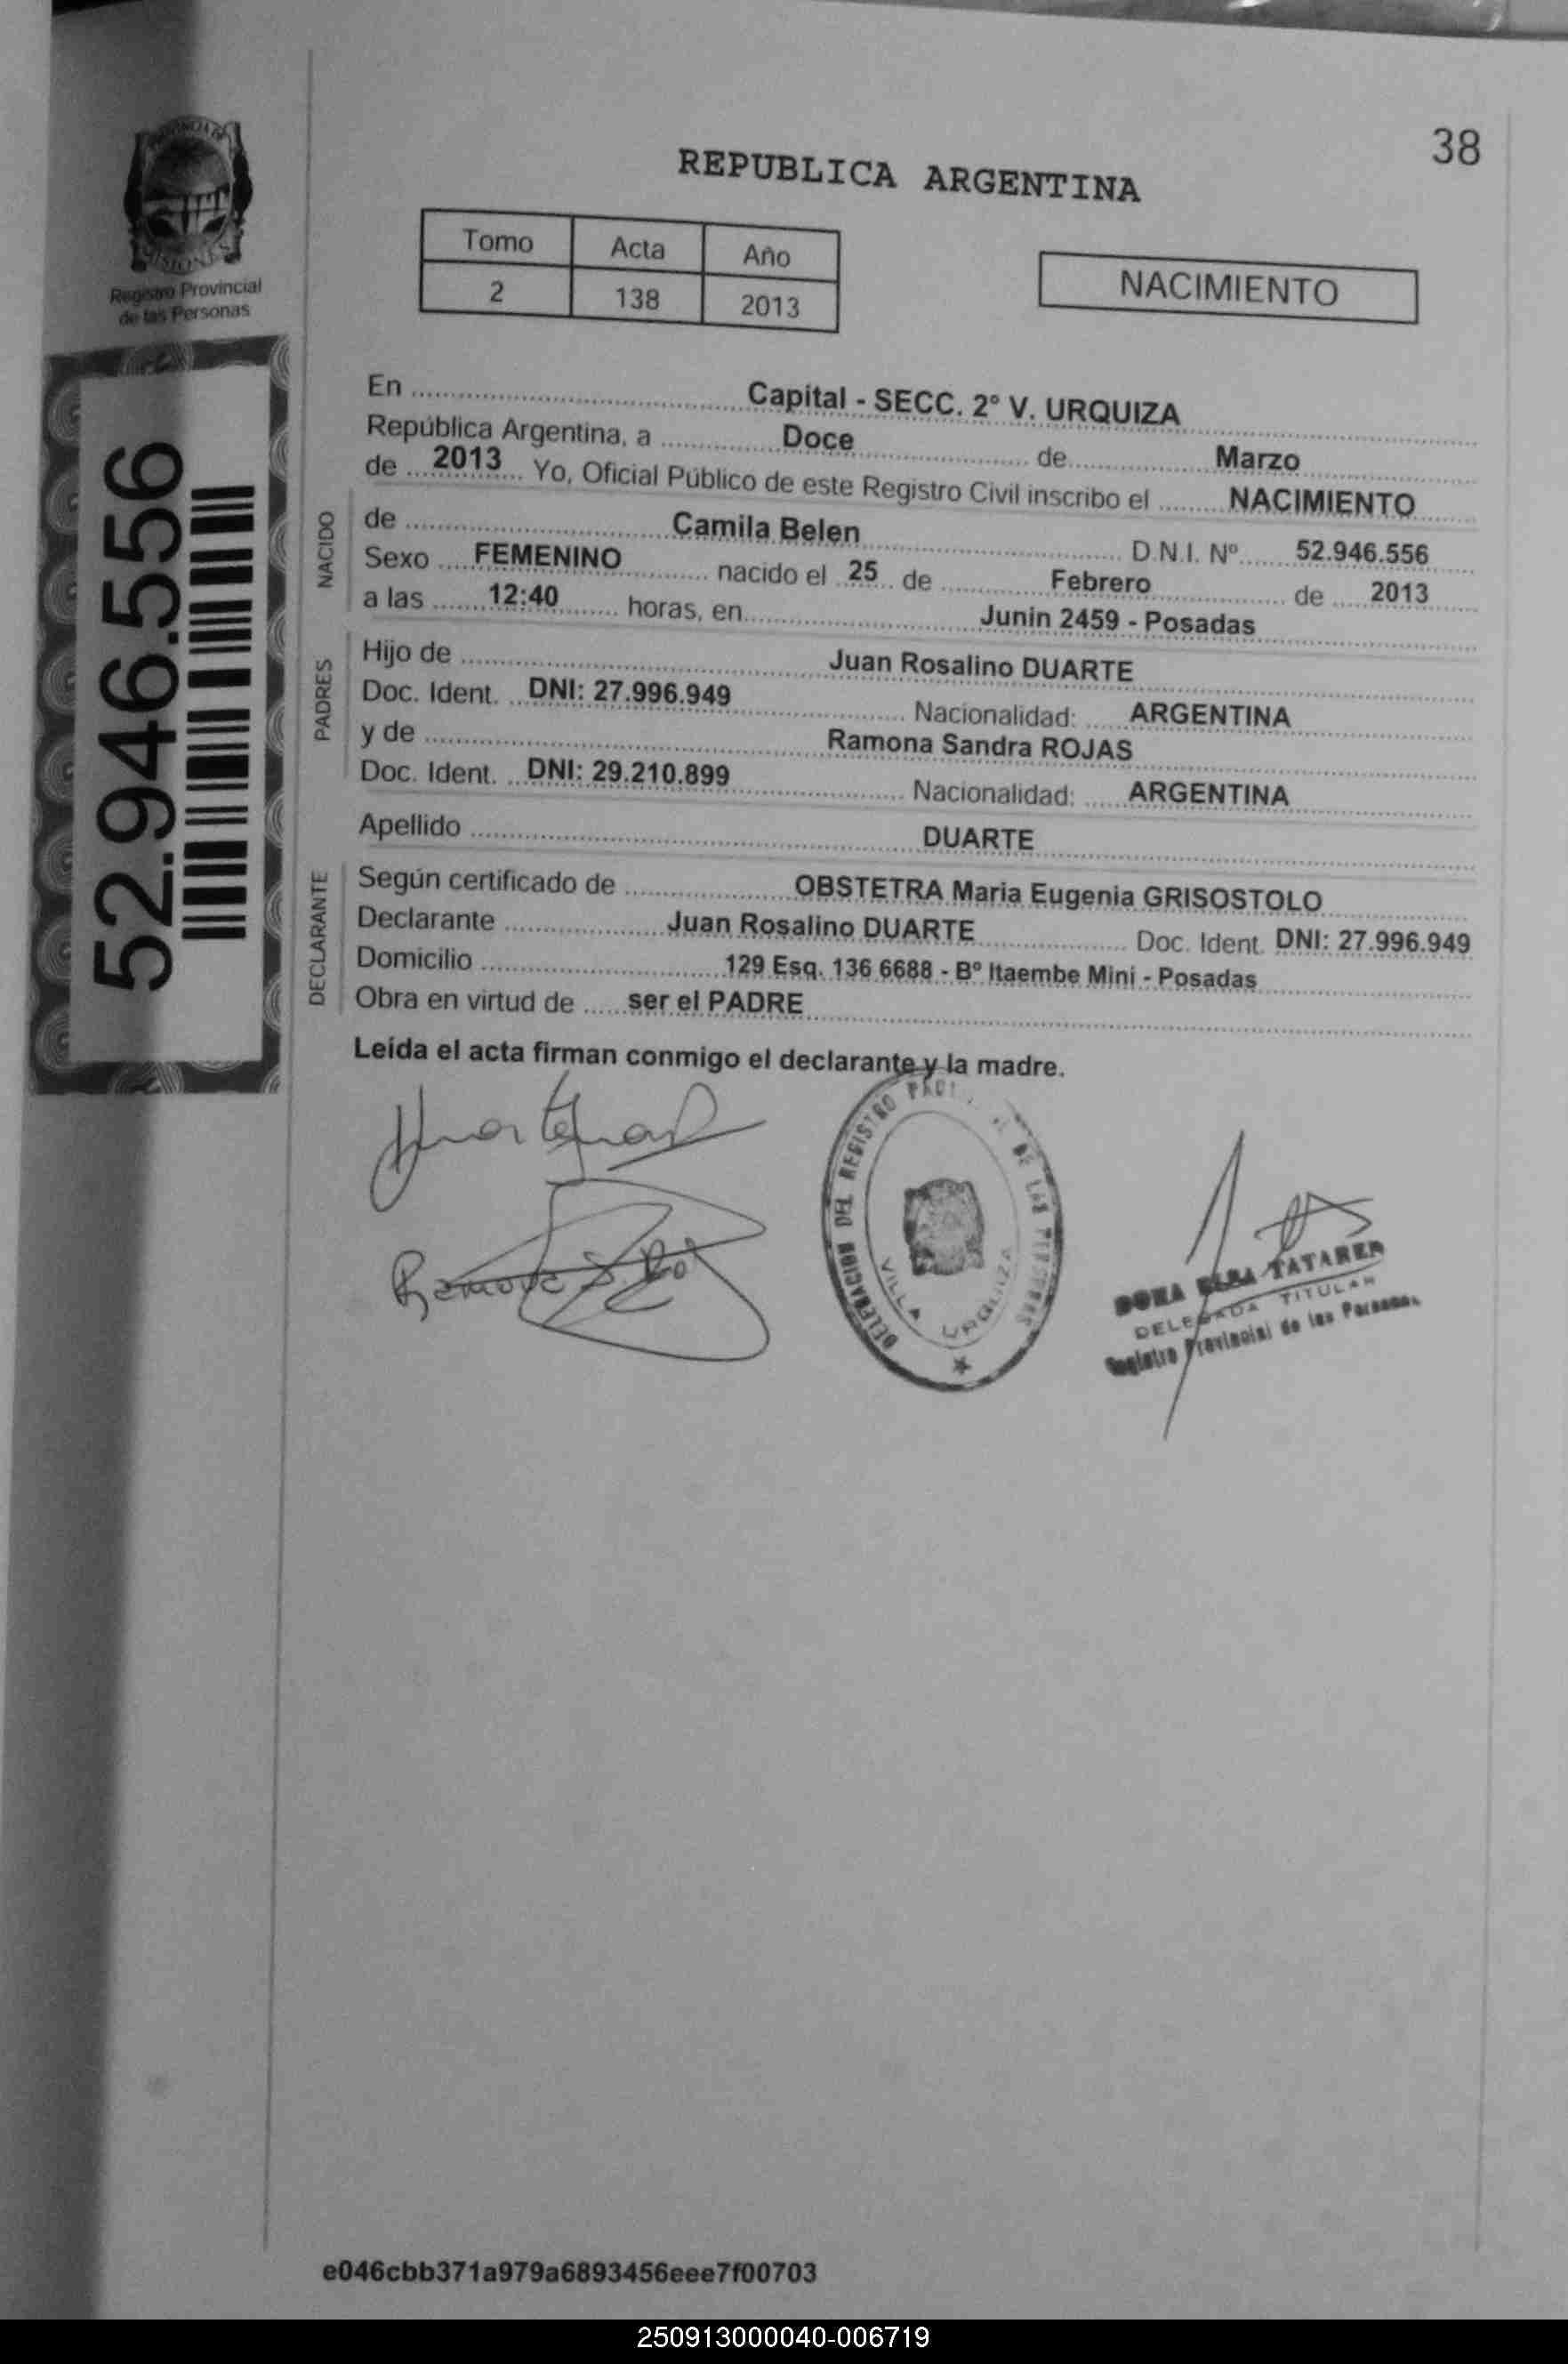 38
REPUBLICA ARGENTINA
MISIONES
Registro Provincial
de las Personas
Tomo Acta Año
2 138 2013
NACIMIENTO
52.946.556
En Capital - SECC. 2° V. URQUIZA
República Argentina, a Doce de Marzo
de 2013 Yo, Oficial Público de este Registro Civil inscribo el NACIMIENTO
NACIDO
de Camila Belen D.N.I. Nº 52.946.556
Sexo FEMENINO nacido el 25 de Febrero de 2013
a las 12:40 horas, en Junin 2459 - Posadas
PADRES
Hijo de Juan Rosalino DUARTE
Doc. Ident. DNI: 27.996.949 Nacionalidad: ARGENTINA
y de Ramona Sandra ROJAS
Doc. Ident. DNI: 29.210.899 Nacionalidad: ARGENTINA
Apellido DUARTE
DECLARANTE
Según certificado de OBSTETRA Maria Eugenia GRISOSTOLO
Declarante Juan Rosalino DUARTE Doc. Ident. DNI: 27.996.949
Domicilio 129 Esq. 136 6688 - Bº Itaembe Mini - Posadas
Obra en virtud de ser el PADRE
Leída el acta firman conmigo el declarante y la madre.
DELEGACION DEL REGISTRO DE LAS
VILLA URQUIZA
TATAREN
DELEGADA TITULAR
Registro Provincial de las Personas
e046cbb371a979a6893456eee7f00703
250913000040-006719